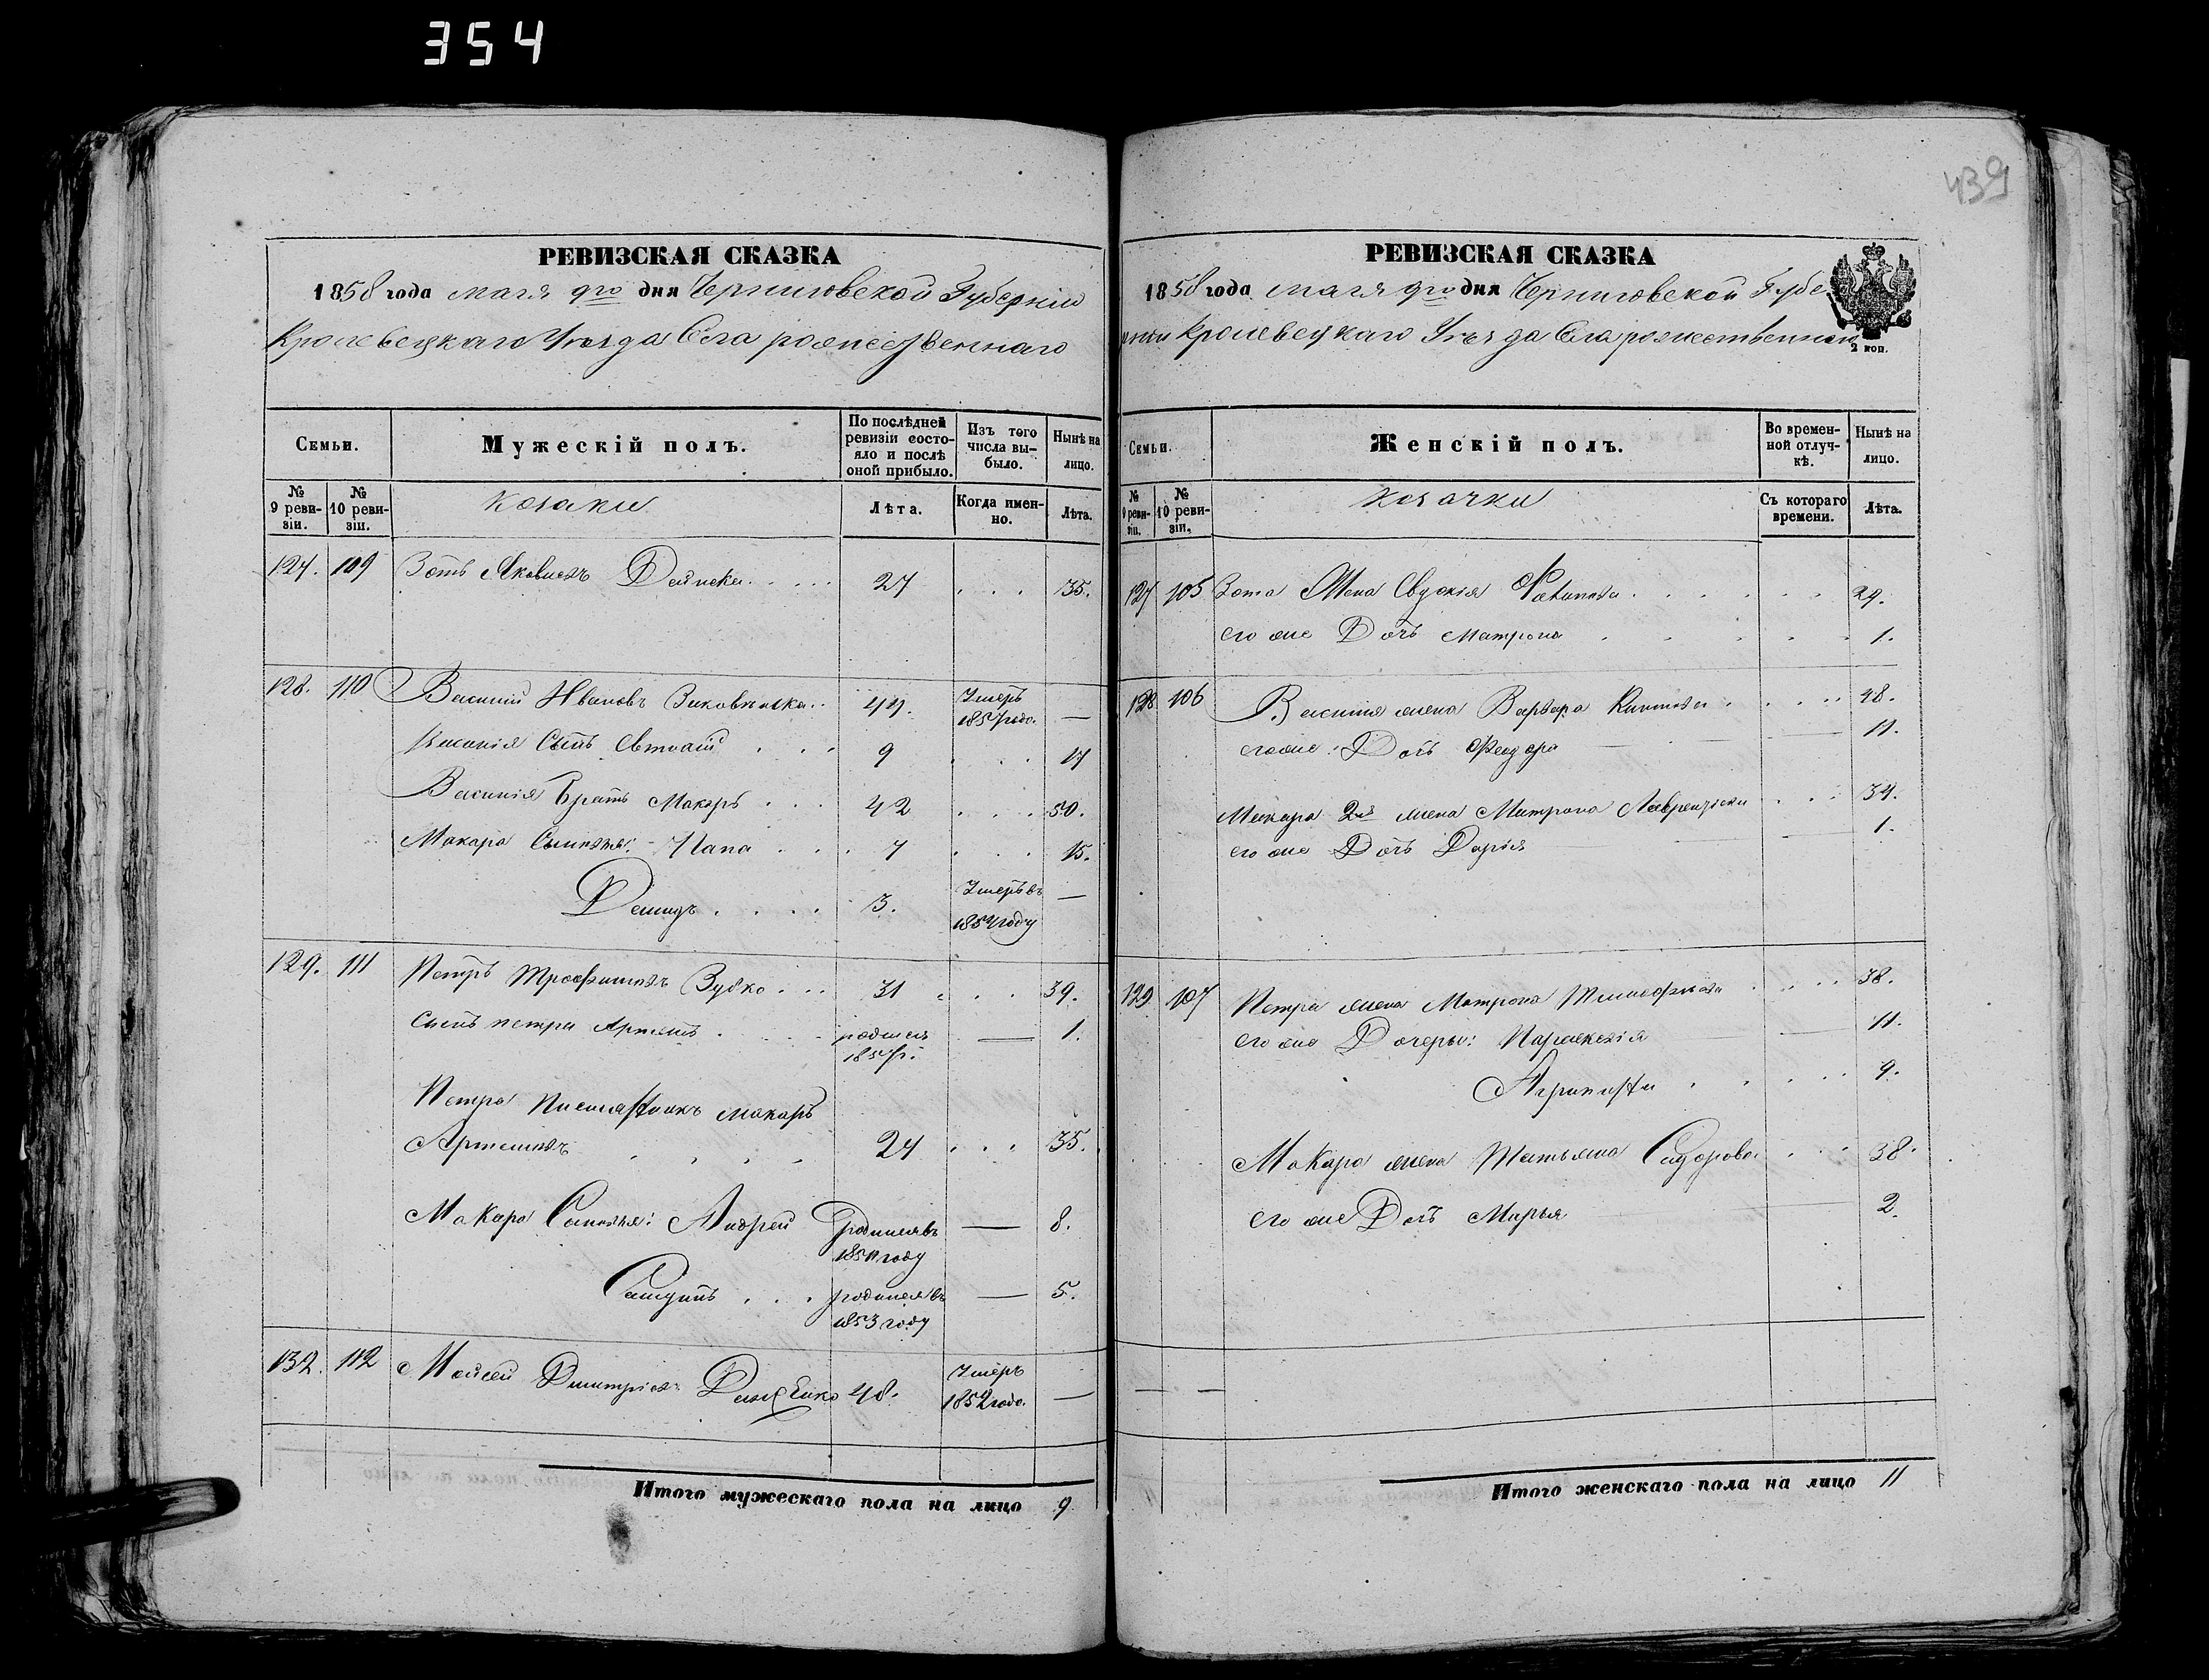 354
439
РЕВИЗСКАЯ СКАЗКА
1858 года мая 9го дня Черниговской Губерніи
Кролевецкаго Уезда Села рожественнаго
Семьи.
Мужескій полъ.
По послѣдней ревизіи состояло и послѣ оной прибыло.
Изъ того числа выбыло.
Нынѣ на лицо.
№ 9 ревизіи.
№ 10 ревизіи.
козаки
Лѣта.
Когда именно.
Лѣта.
127. 109 Зотъ Яковлевъ 27 35.
128. 110 Василій Ивановъ 44. Умеръ 1857 года. —
Василія Сынъ Евтихій 9 17
Василія Братъ Макаръ 42 50.
Макара Сыновья: 7 15.
Демидъ 3. Умеръ въ 1854 году —
129. 111 Петръ Трофимовъ Зубко 31 39.
Сынъ петра Артемъ родился 1857 г. — 1.
Петра племянникъ макаръ
Артемовъ 24 35.
Макара Сыновья: Андрей родился въ 1850 году — 8.
родился въ 1853 году — 5.
132. 112 Моисей Димитріевъ 48. Умеръ 1852 года. —
Итого мужескаго пола на лицо 9
РЕВИЗСКАЯ СКАЗКА
2 коп.
1858 года мая 9го дня Черниговской Губе
рніи Кролевецкаго Уезда Села рожественнаго
Семьи.
Женскій полъ.
Во временной отлучкѣ.
Нынѣ на лицо.
№ 9 ревизіи.
№ 10 ревизіи.
козачки
Съ котораго времени.
Лѣта.
127 105 Зота Жена Евдокія 29.
его же Дочь Матрона 1.
128 106 Василія жена Варвара 48.
его же Дочь Феодора 11.
Макара 2я жена Матрона Лаврентіева 34.
его же Дочь Дарія 1.
129. 107 Петра жена Матрона Тимофеева 38.
его же Дочеры: Параскевія 11.
Агрипина 9.
Макара жена Татьяна Сидорова 38.
его же Дочь Марья 2.
— —
Итого женскаго пола на лицо 11